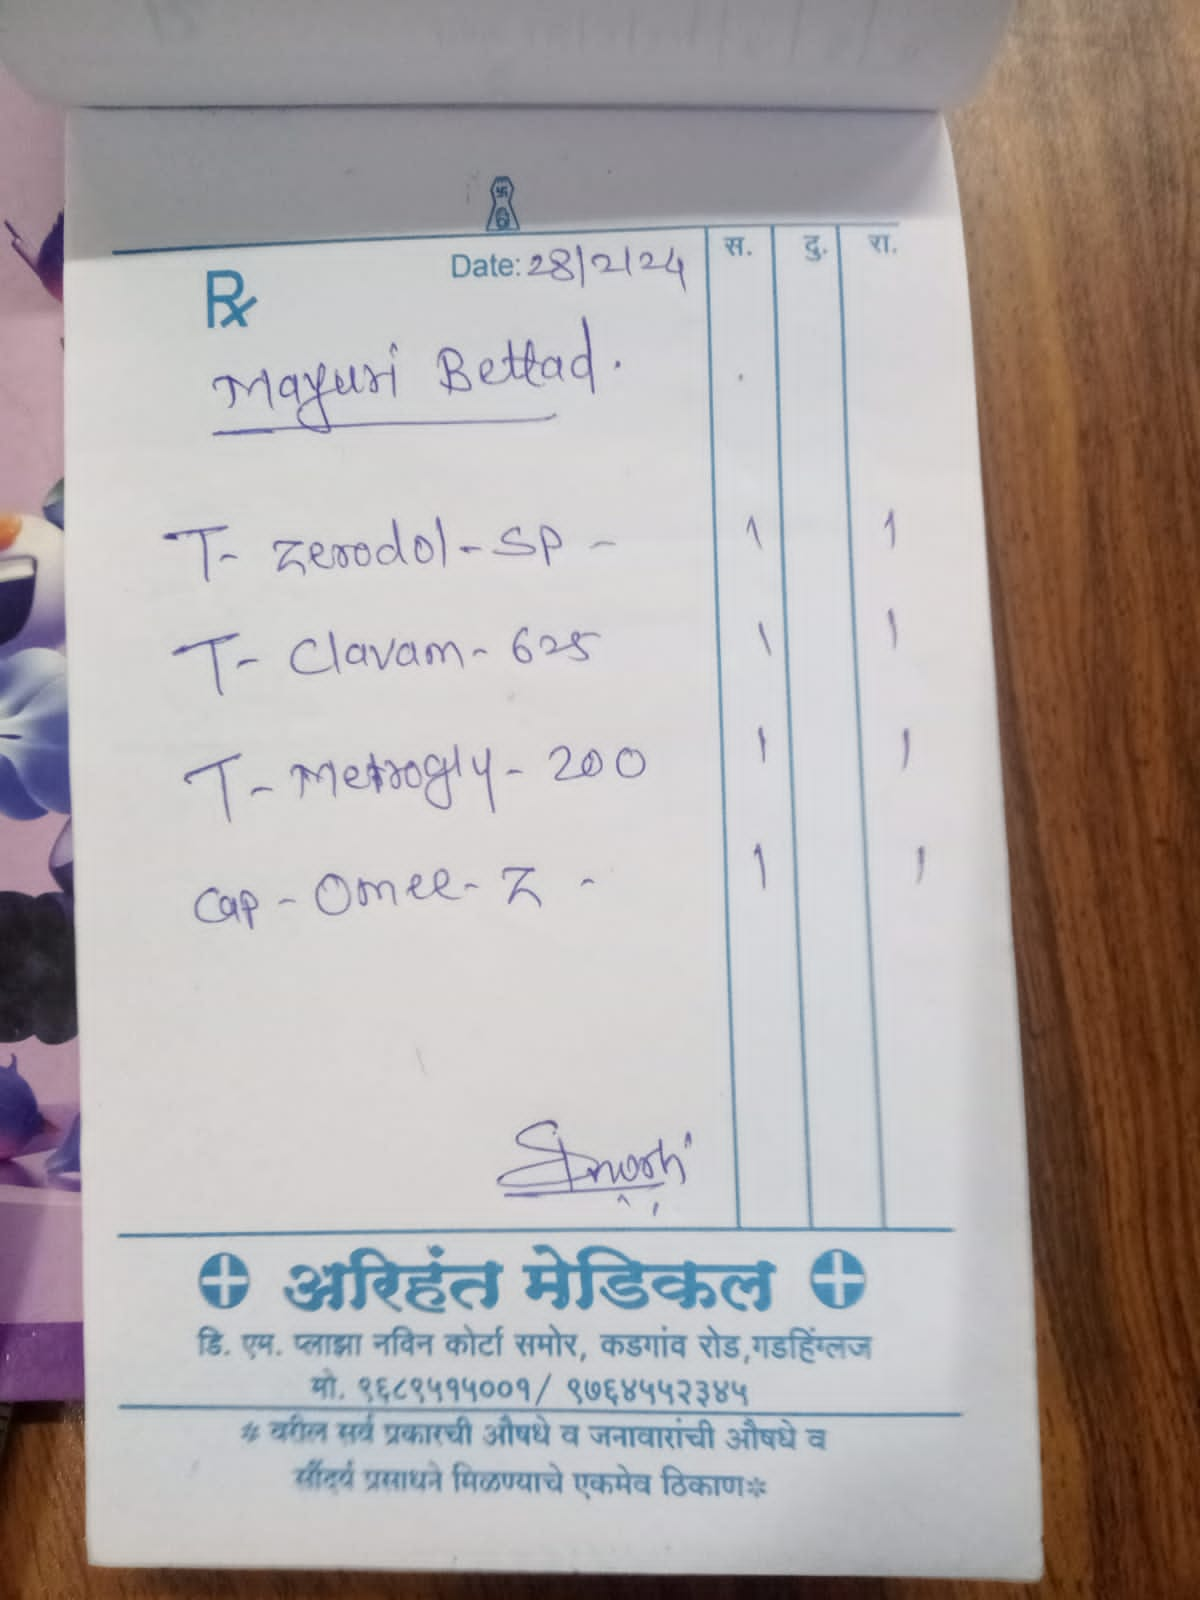 Date: 28/2/24 स. दु. रा.
Rx
Mayuri Bettad.
T- Zerodol-SP - 1 1
T- Clavam- 625 1 1
T- Metrogly- 200 1 1
Cap - Omee- Z - 1 1
अरिहंत मेडिकल
डि. एम. प्लाझा नविन कोर्टा समोर, कडगांव रोड,गडहिंग्लज
मो. ९६८९५१५००१/ ९७६४५५२३४५
# वरील सर्व प्रकारची औषधे व जनावारांची औषधे व
सौंदर्य प्रसाधने मिळण्याचे एकमेव ठिकाण*